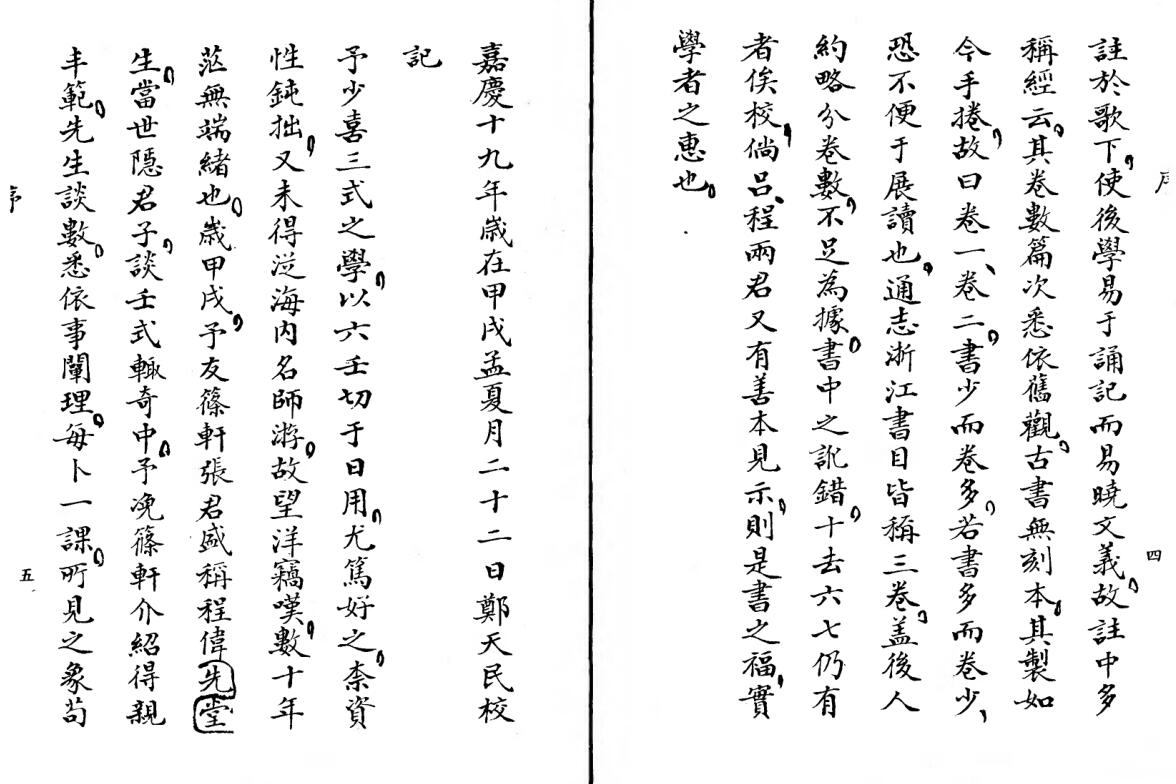 序
註於歌下，使後學易于誦記而易曉文義。故註中多
稱經云。其卷數篇次悉依舊觀。古書無刻本，其製如
今手捲，故曰卷一、卷二。書少而卷多，若書多而卷少、
恐不便于展讀也。通志浙江書目皆稱三卷，盖後人
約略分卷數，不足為據。書中之訛錯，十去六七仍有
者俟校，倘呂、程兩君又有善本見示，則是書之福，實
學者之惠也。
四
嘉慶十九年歲在甲戌孟夏月二十二日鄭天民校
記
予少喜三式之學，以六壬切于日用，尤篤好之，柰資
性鈍拙，又未得從海内名師游。故望洋竊嘆，數十年
茫無端緒也。歲甲戌，予友篠軒張君盛稱程偉先堂
生，當世隱君子，談壬式輙奇中。予浼篠軒介紹得親
丰範。先生談數，悉依事闡理。每卜一課，所見之象苟
序
五